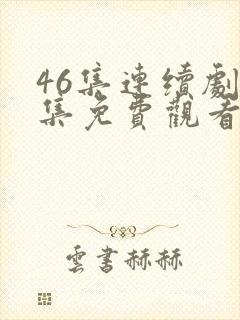 46集連續劇
集免費觀看
雲書赫赫